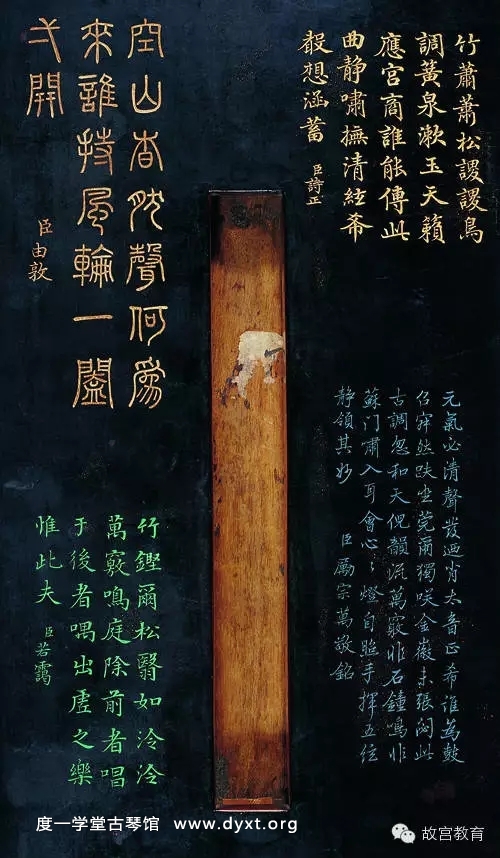 竹蕭蕭松謖謖鳥
調簧泉漱玉天籟
應宮商誰能傳此
曲静嘯撫清絃希
殸想涵蓄 臣詩正
空山杳然聲何為
來誰持風輪一闔
弌開
臣由敦
元氣必清聲發迺肖太音正希誰為鼓
召窅然趺坐莞爾獨咲金徽未張閟此
古調忽和天倪韻流萬竅非石鐘鳴非
蘇门嘯入耳會心〻燈自照手揮五弦
静領其妙 臣勵宗萬敬銘
竹鏗爾松翳如泠泠
萬竅鳴庭除前者唱
于後者喁出虛之樂
惟此夫 臣若靄
度一学堂古琴馆 www.dyxt.org
故宫教育